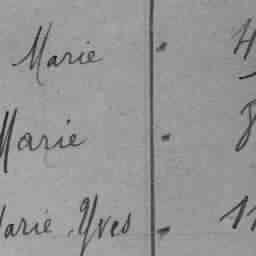 Marie
Marie
Marie Yves 11